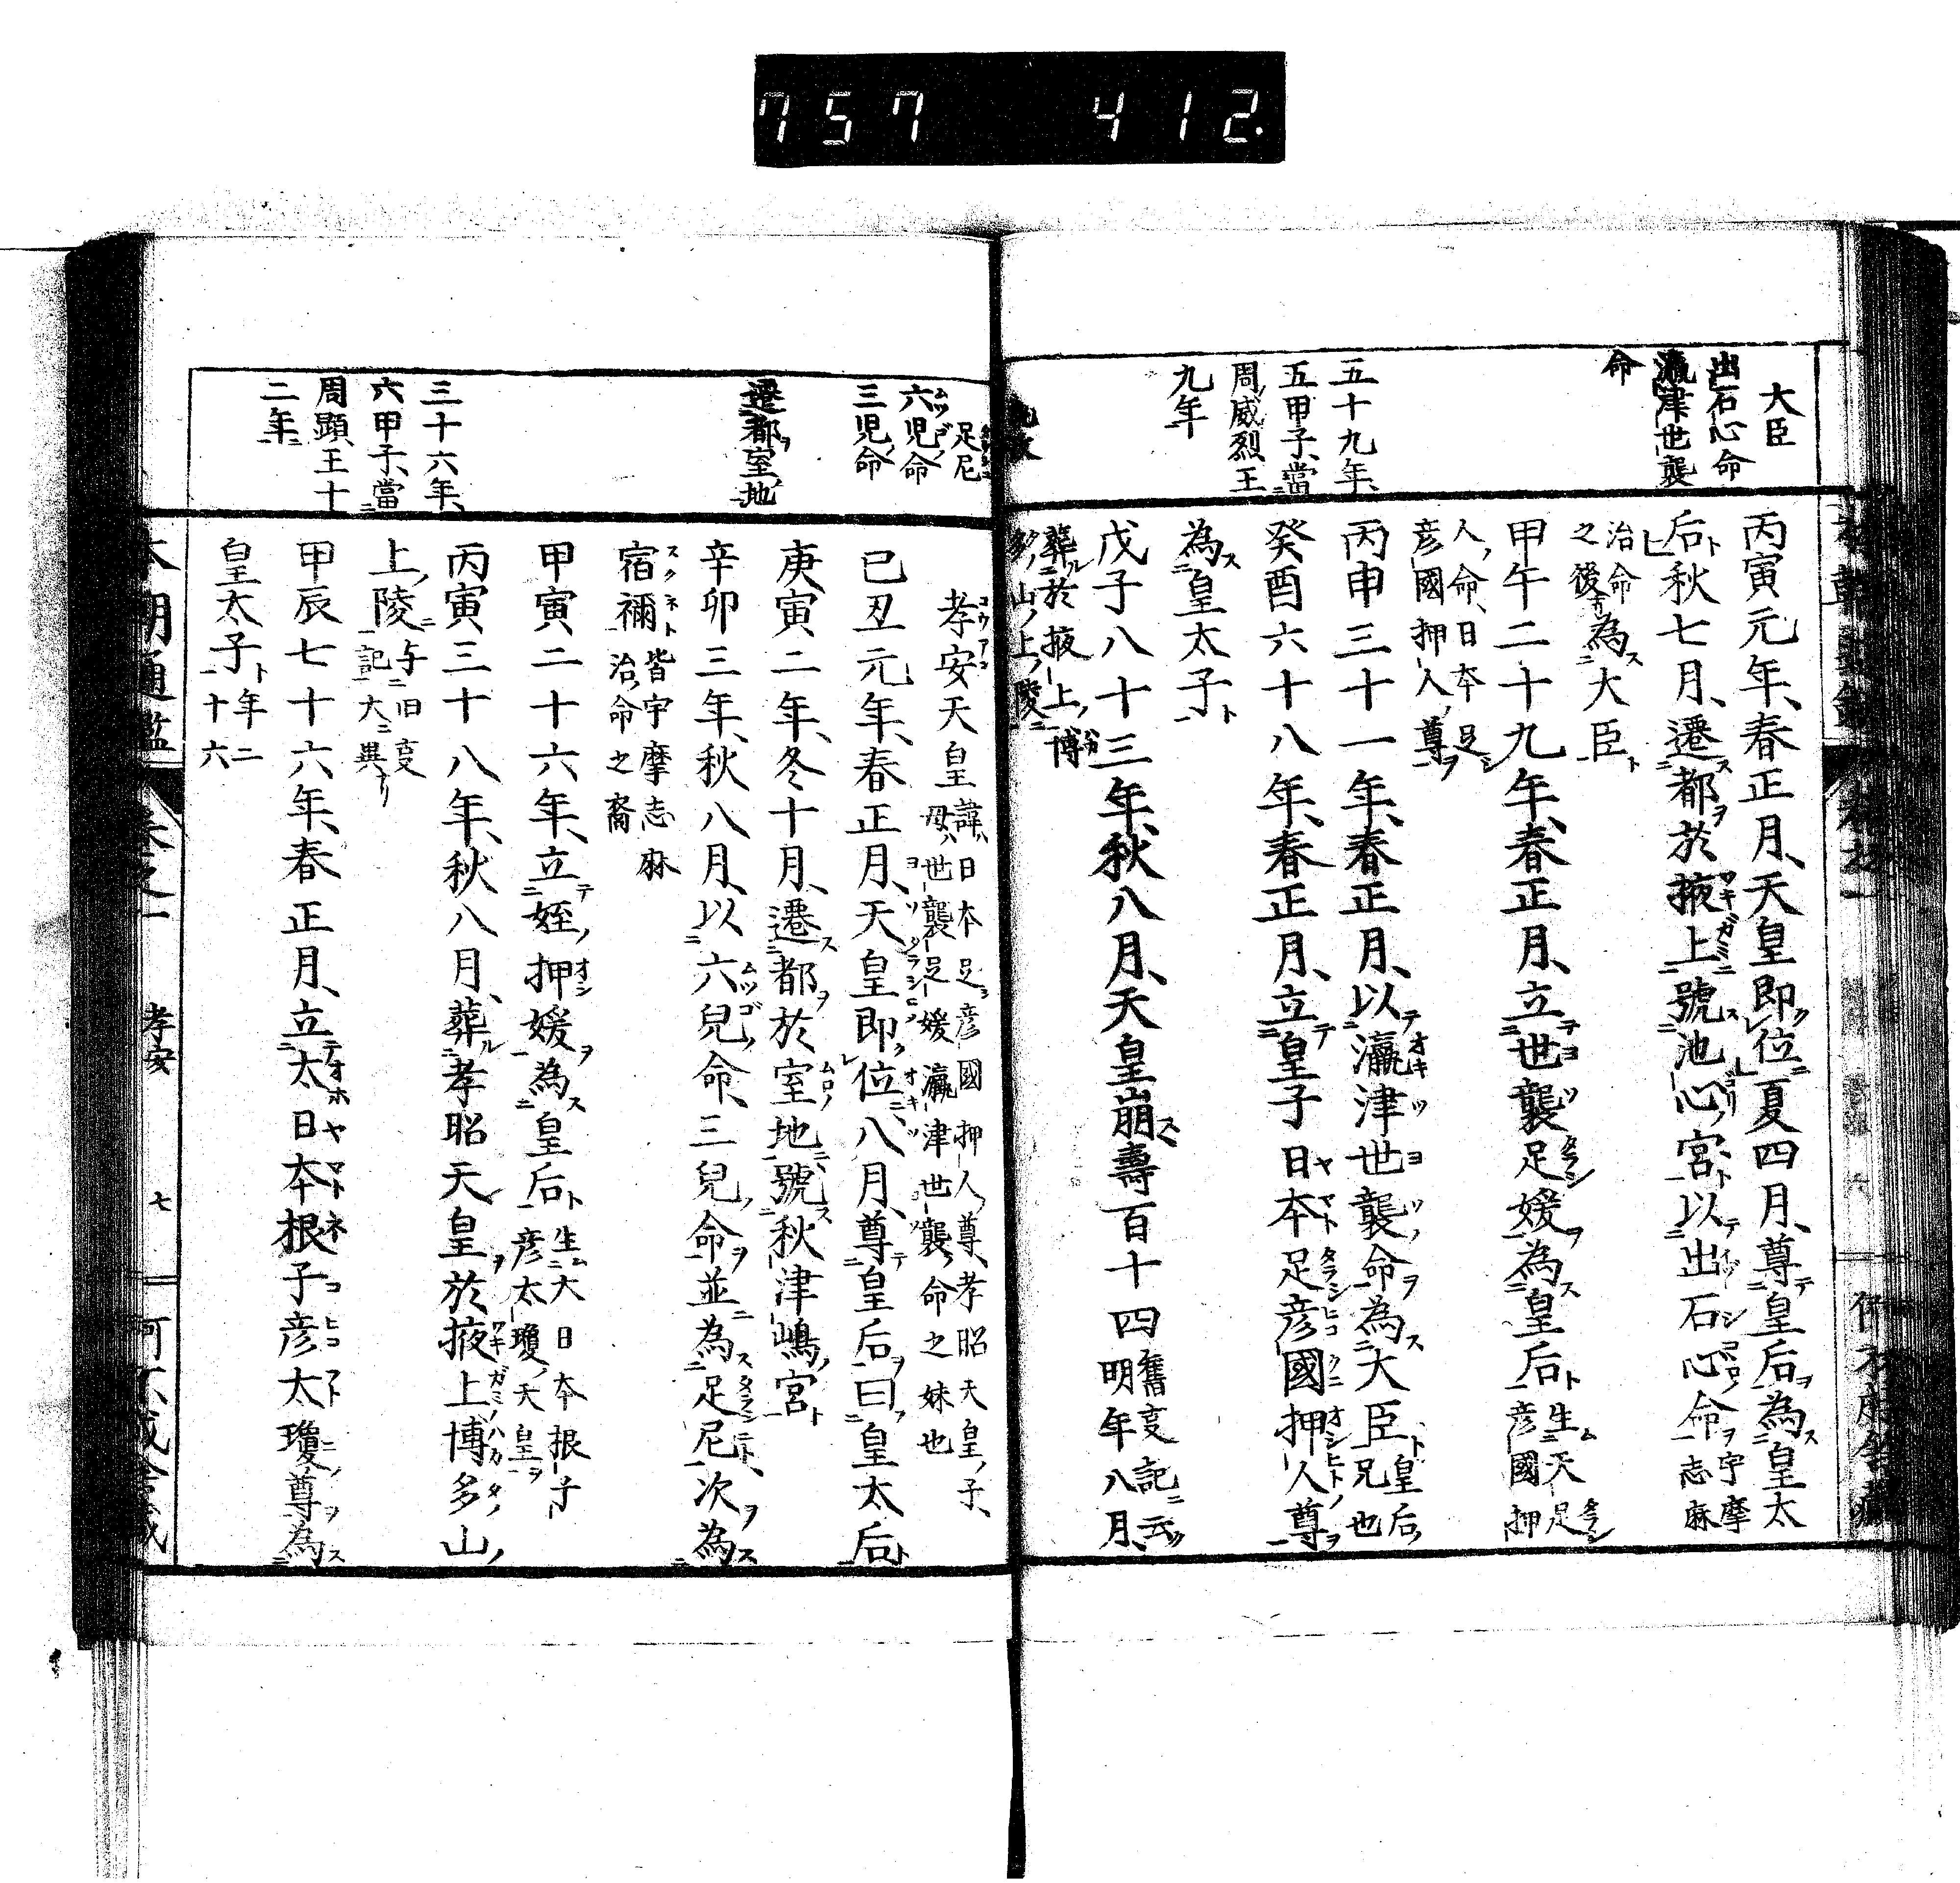 757 412.
大臣
出石心命
瀛津世襲
命
五十九年、
五甲子、當
周威烈王
九年
丙寅元年、春正月、天皇即位夏四月、尊皇后為皇太
后秋七月、遷都於掖上號池心宮以出石心命宇摩志麻
治命之後為大臣
甲午二十九年、春正月、立世襲足媛為皇后生天足彦國押
人命、日本足彦國押人尊
丙申三十一年、春正月、以瀛津世襲命為大臣皇后兄也
癸酉六十八年、春正月、立皇子日本足彦國押人尊
為皇太子
戊子八十三年、秋八月、天皇崩壽百十四舊事記云明年八月、
葬於掖上博多山上陵
足尼
六児命
三児命
遷都室地
三十六年、
六甲子、當
周顯王十
二年
孝安天皇諱日本足彦國押人尊、孝昭天皇子、母世襲足媛瀛津世襲命之妹也
己丑元年、春正月、天皇即位、八月、尊皇后曰皇太后
庚寅二年、冬十月、遷都於室地號秋津嶋宮
辛卯三年、秋八月、以六兒命、三兒命並為足尼、次為
宿禰皆宇摩志麻治命之裔
甲寅二十六年、立姪押媛為皇后生大日本根子彦太瓊天皇
丙寅三十八年、秋八月、葬孝昭天皇於掖上博多山
上陵与旧事記大異
甲辰七十六年、春正月、立太日本根子彦太瓊尊為
皇太子年二十六
本朝通鑑 卷之一 孝安 七